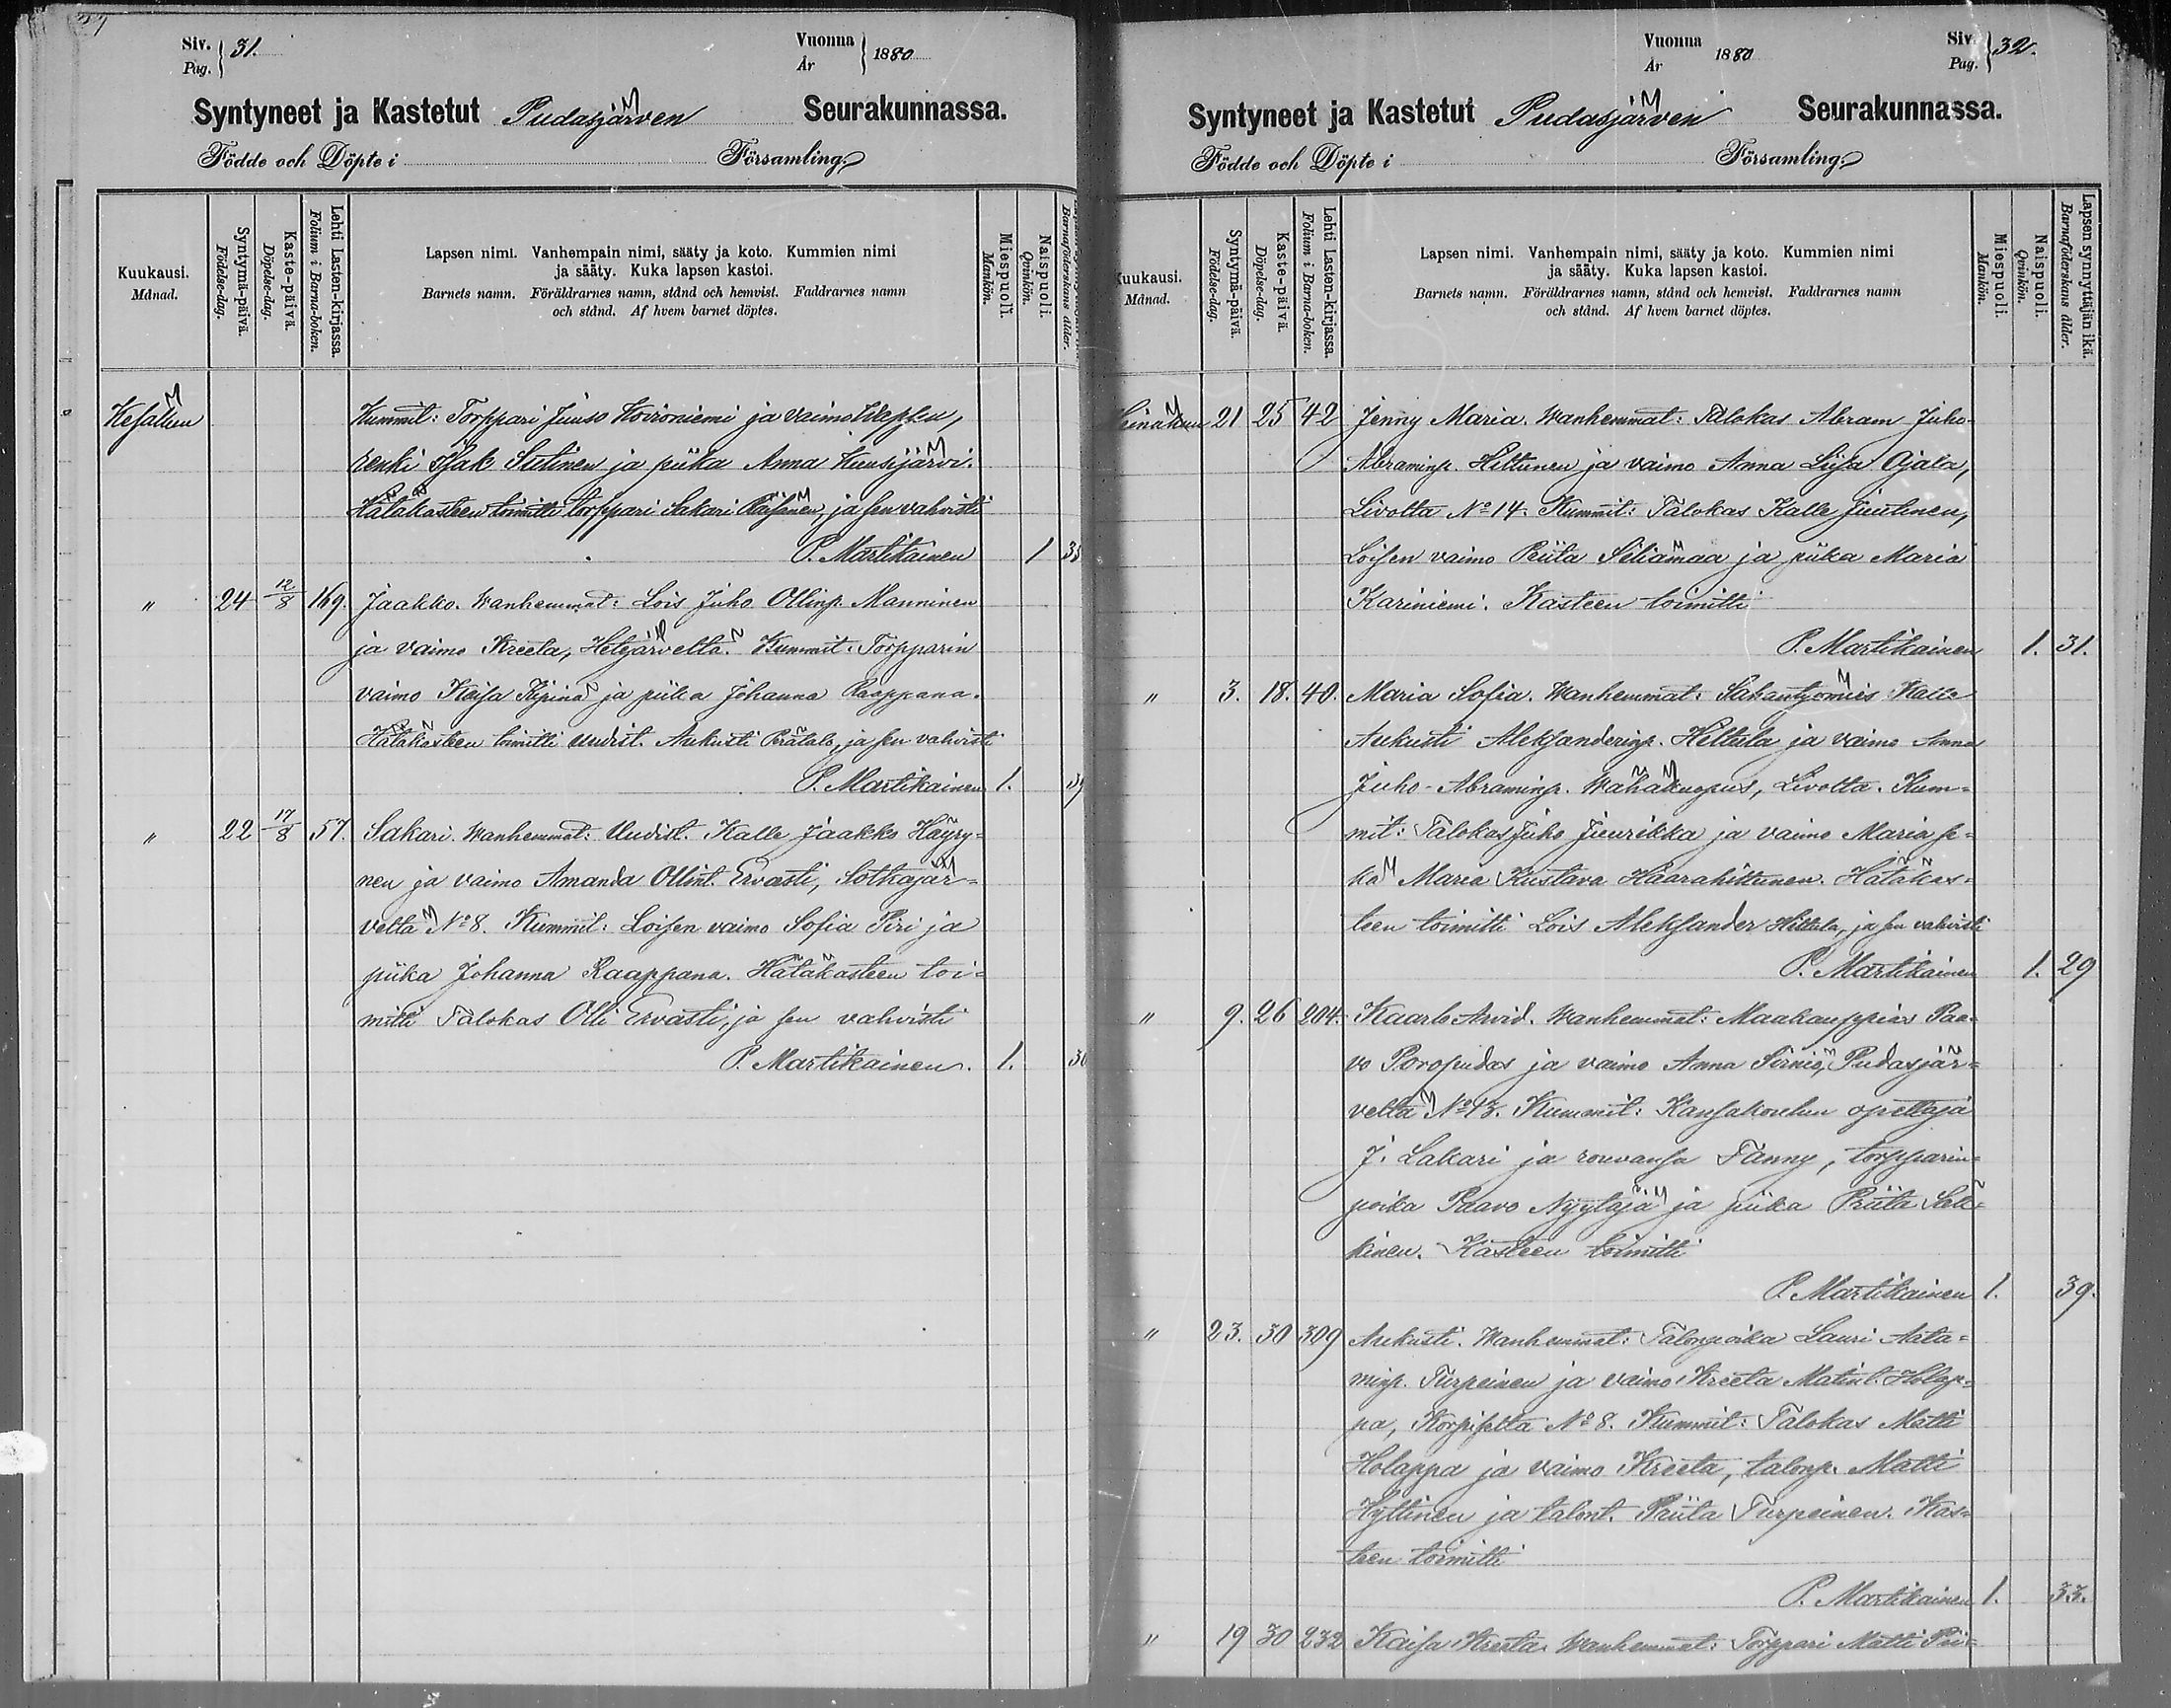 Siv. 31.
Pag.
Vuonna 1880
År
Syntyneet ja Kastetut Pudasjärven Seurakunnassa.
Födde och Döpte i Församling.
Kuukausi.
Månad.
Syntymä-päivä.
Födelse-dag.
Kaste-päivä.
Döpelse-dag.
Lehti Lasten-kirjassa.
Folium i Barna-boken.
Lapsen nimi. Vanhempain nimi, sääty ja koto. Kummien nimi
ja sääty. Kuka lapsen kastoi.
Barnets namn. Föräldrarnes namn, stånd och hemvist. Faddrarnes namn
och stånd. Af hvem barnet döptes.
Miespuoli.
Mankön.
Naispuoli.
Qvinkön.
Barnaföderskans ålder.
Kesäkuu Kummit: Torppari Juuso Koironiemi ja vaimo
renki Isak Sutinen ja piika Anna Kuusijärvi.
Hätäkasteen toimitti torppari Sakari Räisänen, ja sen vahvisti
P. Martikainen 1
" 24 12/8 169. Jaakko. Wanhemmat: Lois Juho Ollinp. Manninen
ja vaimo Kreeta, Hetejärveltä. Kummit: Torpparin
vaimo Kaisa Kipinä ja piika Johanna Raappana.
Hätäkasteen toimitti uudist. Aukusti Perätalo, ja sen vahvisti
P. Martikainen 1.
" 22 17/8 57. Sakari. Wanhemmat: Uudist. Kalle Jaakko Häyry=
nen ja vaimo Amanda Ollint. Ervasti, Sotkajär=
veltä No 8. Kummit: Loisen vaimo Sofia Piri ja
piika Johanna Raappana. Hätäkasteen toi=
mitti Talokas Olli Ervasti, ja sen vahvisti
P. Martikainen. 1.
Vuonna 1880
År
Siv. 32.
Pag.
Syntyneet ja Kastetut Pudasjärven Seurakunnassa.
Födde och Döpte i Församling.
Kuukausi.
Månad.
Syntymä-päivä.
Födelse-dag.
Kaste-päivä.
Döpelse-dag.
Lehti Lasten-kirjassa.
Folium i Barna-boken.
Lapsen nimi. Vanhempain nimi, sääty ja koto. Kummien nimi
ja sääty. Kuka lapsen kastoi.
Barnets namn. Föräldrarnes namn, stånd och hemvist. Faddrarnes namn
och stånd. Af hvem barnet döptes.
Miespuoli.
Mankön.
Naispuoli.
Qvinkön.
Lapsen synnyttäjän ikä.
Barnaföderskans ålder.
Heinäkuu 21 25 42 Jenny Maria. Wanhemmat: Talokas Abram Juho-
Abraminp. Hiltunen ja vaimo Anna Liisa Ojala,
Livolta No 14. Kummit: Talokas Kalle Juutinen,
Loisen vaimo Priita Siliämaa ja piika Maria
Kariniemi. Kasteen toimitti
P. Martikainen 1. 31.
" 3. 18. 40. Maria Sofia. Wanhemmat: Sahantyömies Kalle
Aukusti Aleksanderinp. Hiltula ja vaimo Anna
Juho-Abraminp. Wähäkuopus, Livolta. Kum=
mit: Talokas Juho Jurikka ja vaimo Maria se=
kä Maria Kustava Haarahiltunen. Hätäkas=
teen toimitti Lois Aleksander Hiltula, ja sen vahvisti
P. Martikainen 1. 29
" 9. 26 204. Kaarlo Arvid. Wanhemmat: Maakauppias Paa=
vo Poropudas ja vaimo Anna Sirniö, Pudasjär=
veltä No 13. Kummit: Kansakoulun opettaja
J. Lakari ja rouvansa Fanny, torpparin=
poika Paavo Nyytäjä ja piika Priita Säk=
kinen. Kasteen toimitti
P. Martikainen 1. 39.
" 23. 30 309 Aukusti. Wanhemmat: Talonpoika Lauri Aata=
minp. Turpeinen ja vaimo Kreeta Matint. Holap=
pa, Korpiselta No 8. Kummit: Talokas Matti
Holappa ja vaimo Kreeta, talonp. Matti
Hyttinen ja talont. Priita Turpeinen. Kas=
teen toimitti
P. Martikainen 1. 33.
" 19 30 232 Kaisa Kreeta. Wanhemmat: Torppari Matti Pii=